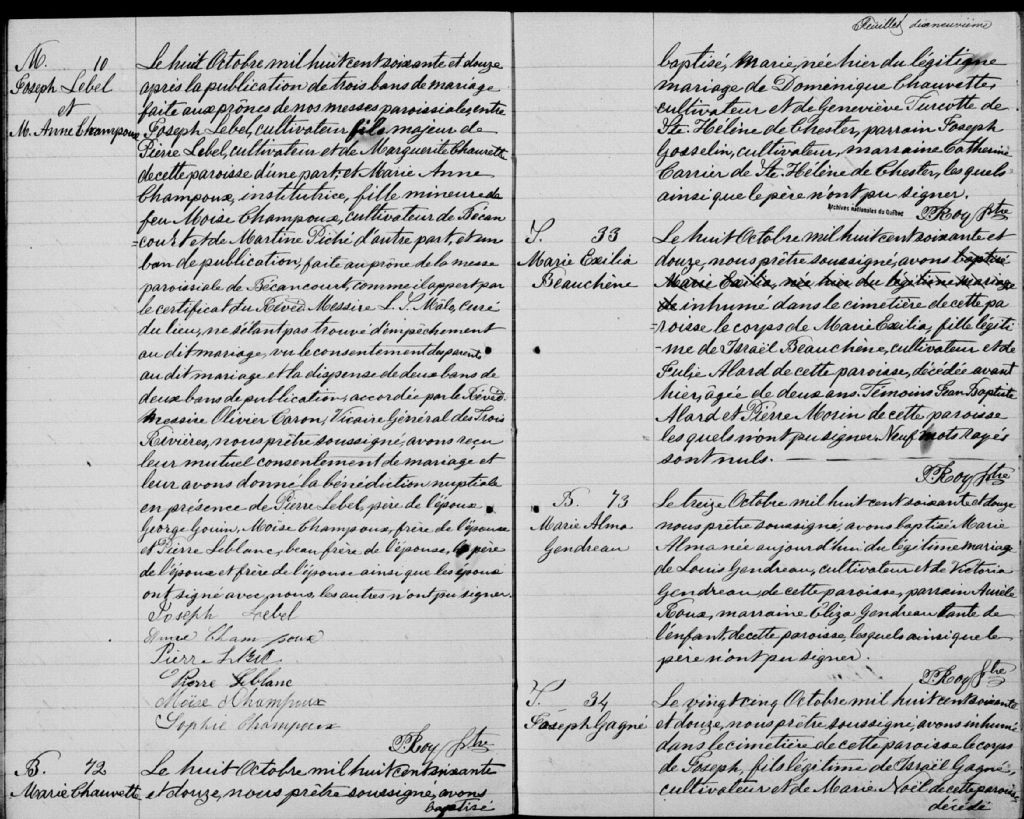 M. 10
Joseph Lebel
et
M. Anne Champoux
Le huit Octobre mil huit cent soixante et douze
après la publication de trois bans de mariage
faite aux prônes de nos messes paroissiales, entre
Joseph Lebel, cultivateur fils majeur de
Pierre Lebel, cultivateur et de Marguerite Chaurette
de cette paroisse d'une part; et Marie Anne
Champoux, institutrice, fille mineure de
feu Moïse Champoux, cultivateur de Bécan
=court et de Martine Piché d'autre part, et un
ban de publication, faite au prône de la messe
paroissiale de Bécancourt, comme il appert par
le certificat du Révd Messire L. S. Malo, curé
du lieu, ne s'étant pas trouvé d'empêchement
au dit mariage, vu le consentement des parents
au dit mariage et la dispense de deux bans de
deux bans de publication, accordée par le Révd.
Messire Olivier Caron, Vicaire Général des Trois
Rivières, nous prêtre soussigné, avons reçu
leur mutuel consentement de mariage et
leur avons donné la bénédiction nuptiale
en présence de Pierre Lebel, père de l'époux
George Gouin, Moïse Champoux, frère de l'épouse
et Pierre Leblanc, beau frère de l'épouse, le père
de l'époux et frère de l'épouse ainsi que les époux
ont signé avec nous, les autres n'ont pu signer.
Joseph Lebel
Anne Champoux
Pierre Lebel
Pierre Leblanc
Moïse d Champoux
Sophie Champoux
P. Roy Ptre
B. 72
Marie Chauvette
Le huit Octobre mil huit cent soixante
et douze, nous prêtre soussigné, avons
baptisé
Feuillet dixneuvième
baptisé, Marie, née hier du légitigne
mariage de Doménique Chauvette,
cultivateur et de Geneviève Turcotte de
Ste Hélène de Chester, parrain Joseph
Gosselin, cultivateur, marraine Catherine
Carrier de Ste Hélène de Chester, lesquels
ainsi que le père n'ont pu signer.
Archives nationales du Québec
P. Roy Ptre
S. 33
Marie Exilia
Beauchêne
Le huit Octobre mil huit cent soixante et
douze, nous prêtre soussigné, avons baptisé
Marie Exilia, née hier du légitime mariage
de inhumé dans le cimetière de cette pa
=roisse le corps de Marie Exilia, fille légiti
=me de Israël Beauchêne, cultivateur et de
Julie Alard de cette paroisse, décédée avant
hier, âgée de deux ans. Témoins Jean Baptiste
Alard et Pierre Morin de cette paroisse
lesquels n'ont pu signer. Neuf mots rayés
sont nuls.
P. Roy Ptre
B. 73
Marie Alma
Gendreau
Le treize Octobre mil huit cent soixante et douze
nous prêtre soussigné, avons baptisé Marie
Alma née aujourd'hui du légitime mariage
de Louis Gendreau, cultivateur et de Victoria
Gendreau, de cette paroisse, parrain Aurèle
Roux, marraine Eliza Gendreau tante de
l'enfant de cette paroisse, lesquels ainsi que le
père n'ont pu signer.
P. Roy Ptre
S. 34
Joseph Gagné
Le vingt cinq Octobre mil huit cent soixante
et douze, nous prêtre soussigné, avons inhumé
dans le cimetière de cette paroisse le corps
de Joseph, fils légitime de Israël Gagné,
cultivateur et de Marie Noël de cette paroisse
décédé